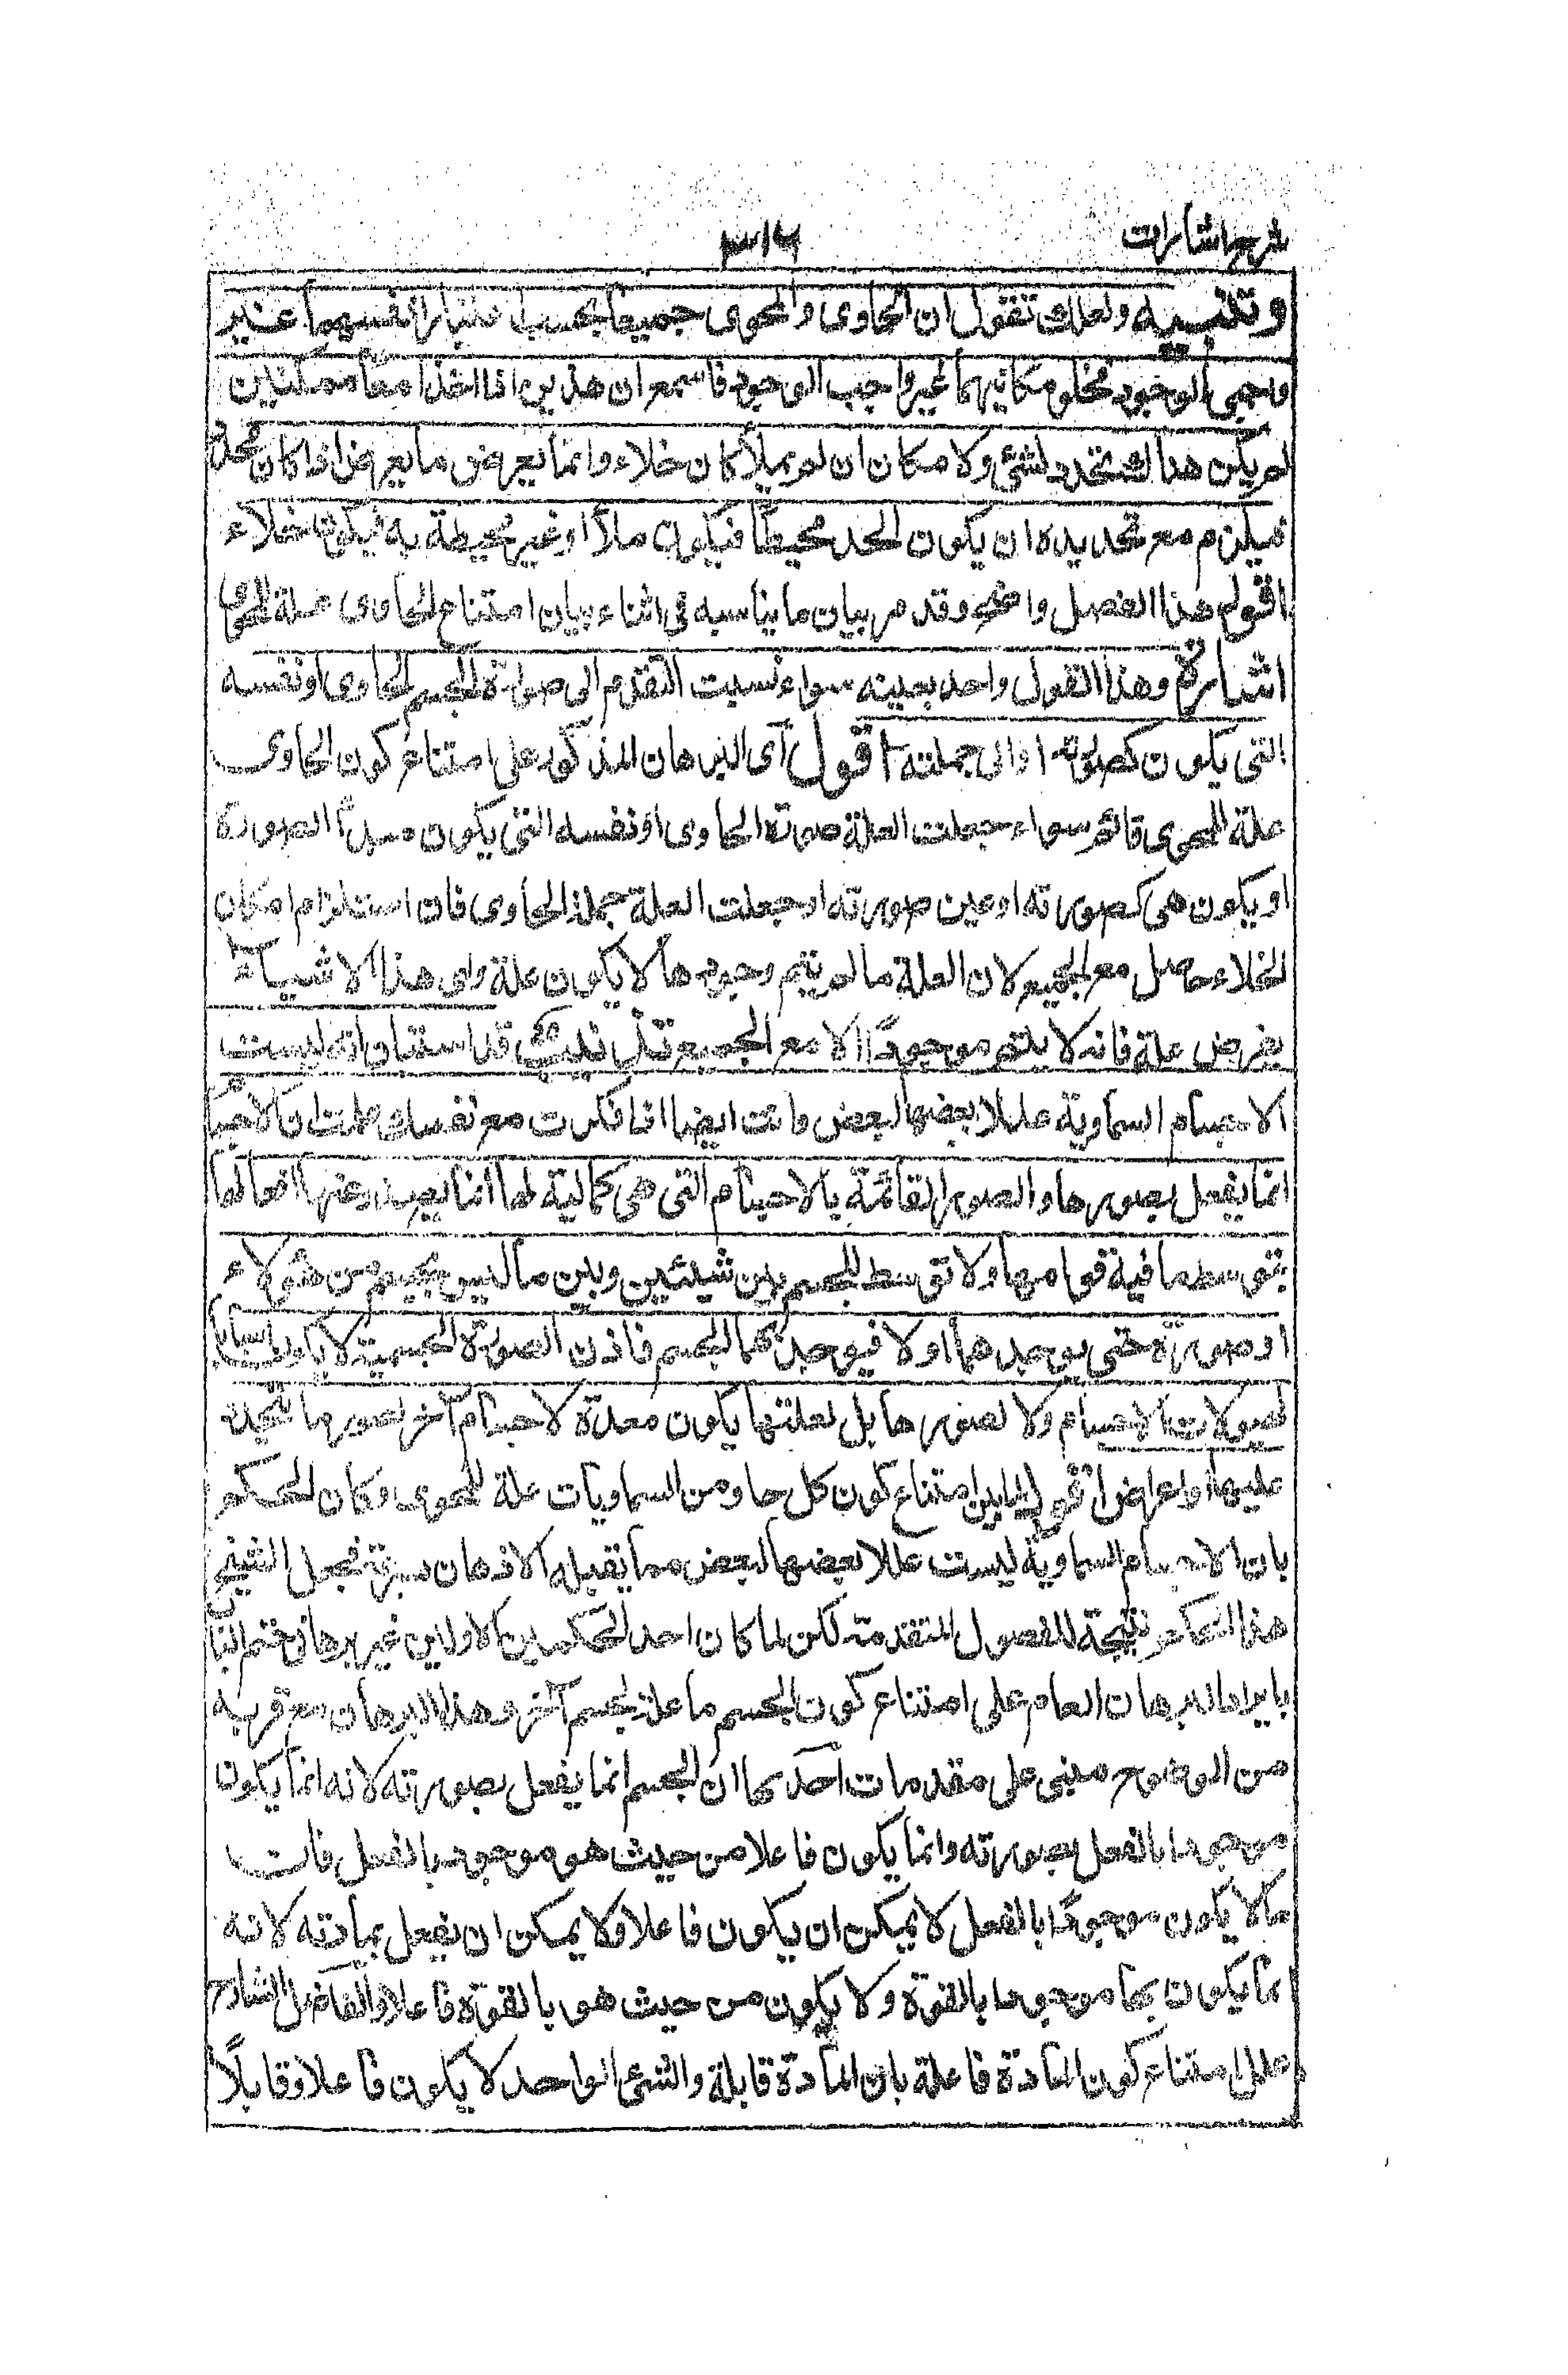 شرح اشارات ٣١٦
وتنبيه ولعلك تقول ان الحاوى والمحوى جميعا بحسب اعتبار انفسهما غير
واجبى الوجود فخلو مكانيهما غير واجب الوجود فاسمع ان هذين اذا اخذا معا ممكنين
لم يكن هذا لتحدد لشئ ولا مكان ان لم يملأ كان خلاء وانما يعرض ما يعرض اذا كان محدد
فيلزم مع تحديده ان يكون الحد محيطا فيكون ملأ او غير محيطة به فيكون خلاء
اقول هذا الفصل واضح وقد مر بيان ما يناسبه فى اثناء بيان امتناع الحاوى علة للمحوى
اشارة وهذا القول واحد بعينه سواء نسبت التقدم الى صورة الجسم الحاوى او نفسه
التى يكون كصورته او الى جملته اقول اى البرهان المذكور على امتناع كون الحاوى
علة للمحوى قائم سواء جعلت العلة صورة الحاوى او نفسه التى يكون مبدأ الصورة
او يكون هى كصورته او عين صورته او جعلت العلة جملة الحاوى فان استلزام امكان
الخلاء حاصل مع الجميع لان العلة ما لم يتم وجودها لا يكون علة واى هذا الاشياء
يفرض علة فانه لا يتم موجودا الا مع الجميع تذنيب قد استبان انه ليست
الاجسام السماوية عللا بعضها لبعض وانت ايضا اذا فكرت مع نفسك علمت ان الاجسام
انما يفعل بصورها والصور القائمة بالاجسام التى هى كمالية لها انما يصدر عنها افعالها
بتوسط ما فيه قوامها ولا توسط للجسم بين شيئين وبين ما ليس بجسم من هؤلاء
او صورة حتى يوجدهما اولا فيوجد بهما الجسم فاذن الصورة الجسمية لا يكون اسبابا
لهيولات الاجسام ولا لصورها بل لعلتها يكون معدة لاجسام آخر لصور ما يتجدد
عليها او اعراض اقول لما بين امتناع كون كل حاو من السماويات علة للمحوى وكان الحكم
بان الاجسام السماوية ليست عللا بعضها لبعض مما يقبله الاذهان بسرعة فجعل الشيخ
هذا الحكم نتيجة للفصول المتقدمة لكن لما كان احد الحكمين الاولين غير برهانى ختم البيان
بايراد البرهان العام على امتناع كون الجسم ما علة لجسم آخر وهذا البرهان مع قربه
من الوضوح مبنى على مقدمات احدىها ان الجسم انما يفعل بصورته لانه انما يكون
موجودا بالفعل بصورته وانما يكون فاعلا من حيث هو موجود بالفعل فان
ما لا يكون موجودا بالفعل لا يمكن ان يكون فاعلا ولا يمكن ان يفعل بمادته لانه
انما يكون بها موجودا بالقوة ولا يكون من حيث هو بالقوة فاعلا والفاضل الشارح
علل امتناع كون المادة فاعلة بان المادة قابلة والشئ الواحد لا يكون فاعلا وقابلا